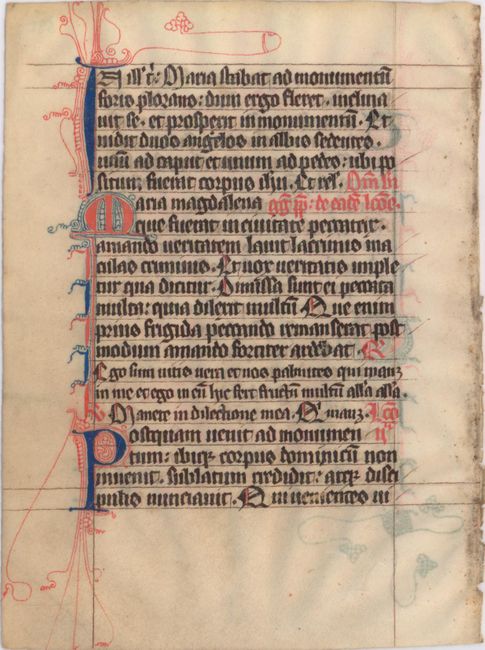 In ill' t'. Maria stabat ad monumentũ
foris plorans: dum ergo fleret. inclina
uit se. et prospexit in monumentũ. Et
uidit duos angelos in albis sedentes.
unũ ad caput et unum ad pedes: ubi po
situm fuerat corpus ihu. Et rel.
Maria magdalena
que fuerat in ciuitate peccatrix.
amando ueritatem lauit lacrimis ma
culas criminis. Et uox ueritatis imple
tur qua dicitur. Dimissa sunt ei peccata
multa: quia dilexit multũ. Que enim
prius frigida peccando remanserat post
modum amando fortiter ardebat. R
Ego sum uitis uera et uos palmites qui manz
in me et ego in eũ hic fert fructũ multũ alla alla.
V Manete in dilectione mea. Q manz. Lco
Postquam uenit ad monumen
tum: ibiqz corpus dominicũ non
inuenit. sublatum credidit: atqz disci
pulis nunciauit. Qui uenientes ui